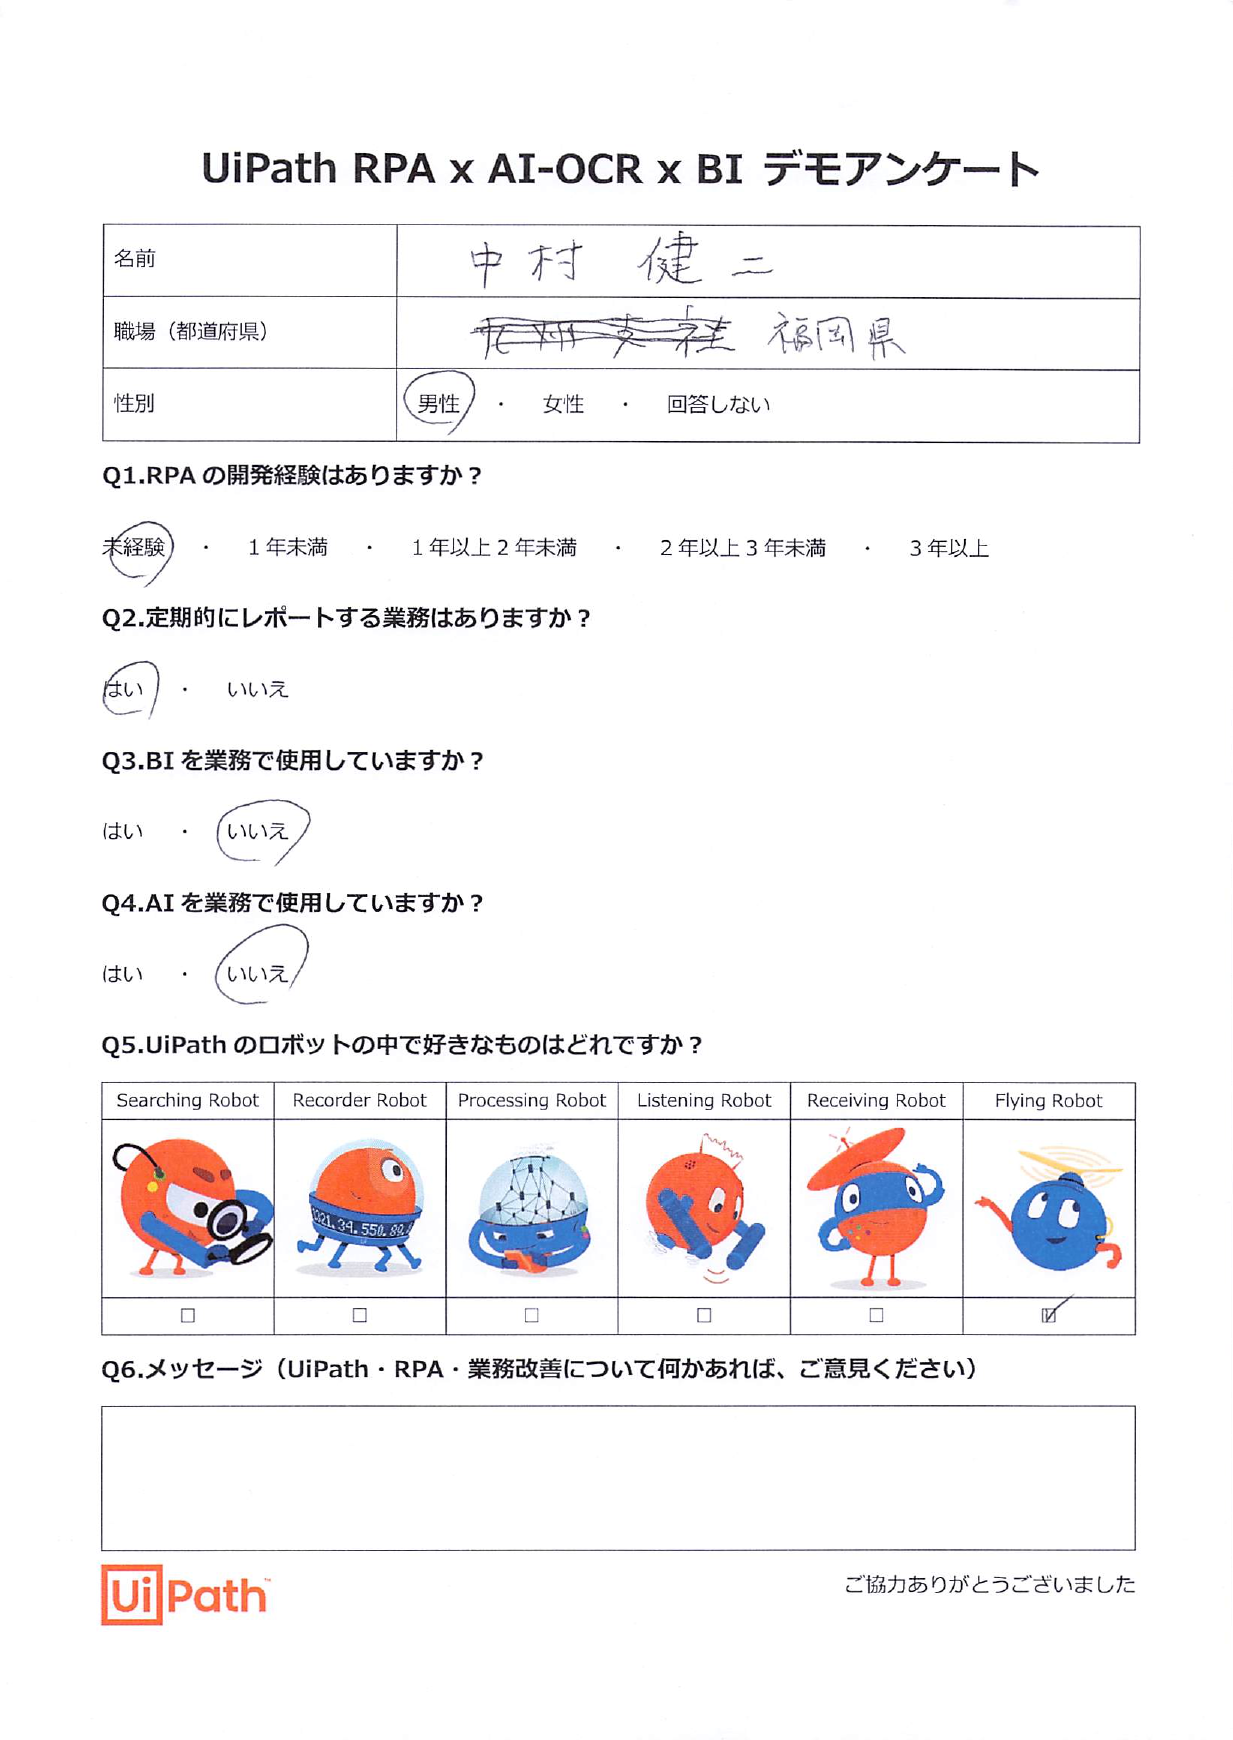 UiPath RPA x AI-OCR x BI デモアンケート
名前 中村 健二
職場（都道府県） 九州支社 福岡県
性別 男性 ・ 女性 ・ 回答しない
Q1.RPA の開発経験はありますか？
未経験 ・ 1 年未満 ・ 1 年以上 2 年未満 ・ 2 年以上 3 年未満 ・ 3 年以上
Q2.定期的にレポートする業務はありますか？
はい ・ いいえ
Q3.BI を業務で使用していますか？
はい ・ いいえ
Q4.AI を業務で使用していますか？
はい ・ いいえ
Q5.UiPath のロボットの中で好きなものはどれですか？
Searching Robot Recorder Robot Processing Robot Listening Robot Receiving Robot Flying Robot
□ □ □ □ □ ☑
Q6.メッセージ（UiPath・RPA・業務改善について何かあれば、ご意見ください）
UiPath™ ご協力ありがとうございました